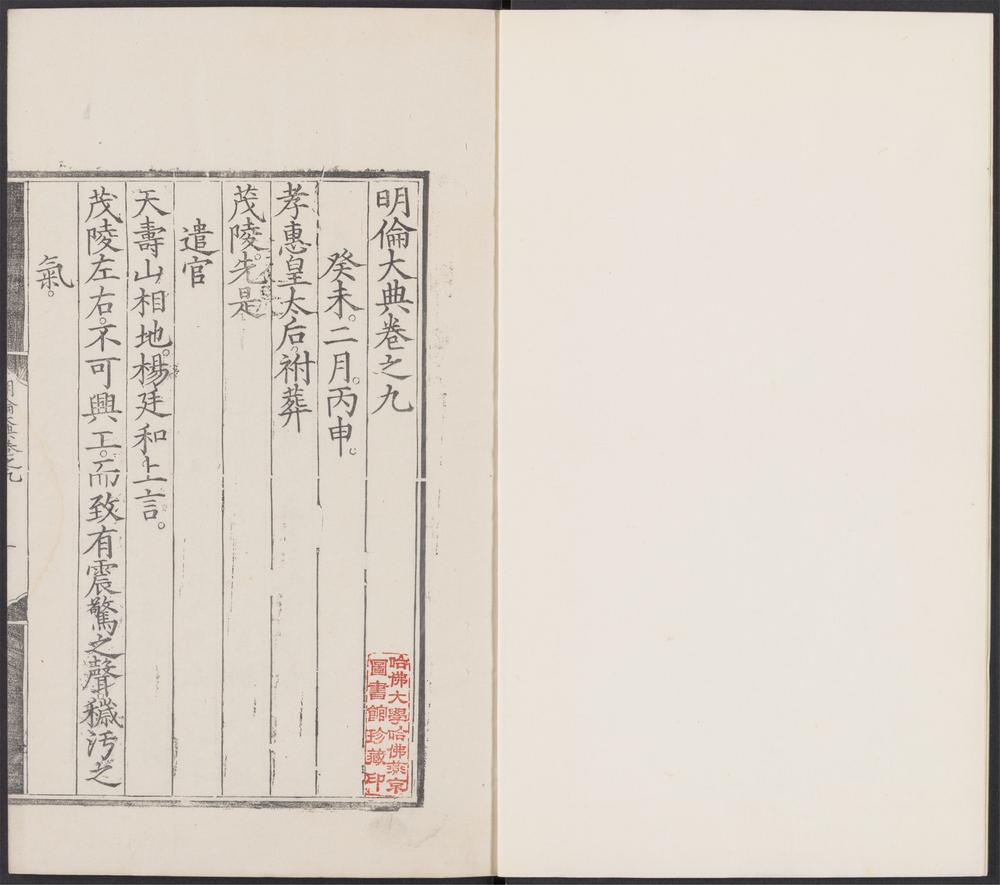 明倫大典卷之九
癸未。二月。丙申。
孝惠皇太后。祔葬
茂陵。先是
遣官
天壽山相地。楊廷和上言。
茂陵左右。不可興工。而致有震驚之聲。穢汚之
氣。
哈佛大學哈佛燕京
圖書館珍藏印
明倫大典卷之九
一